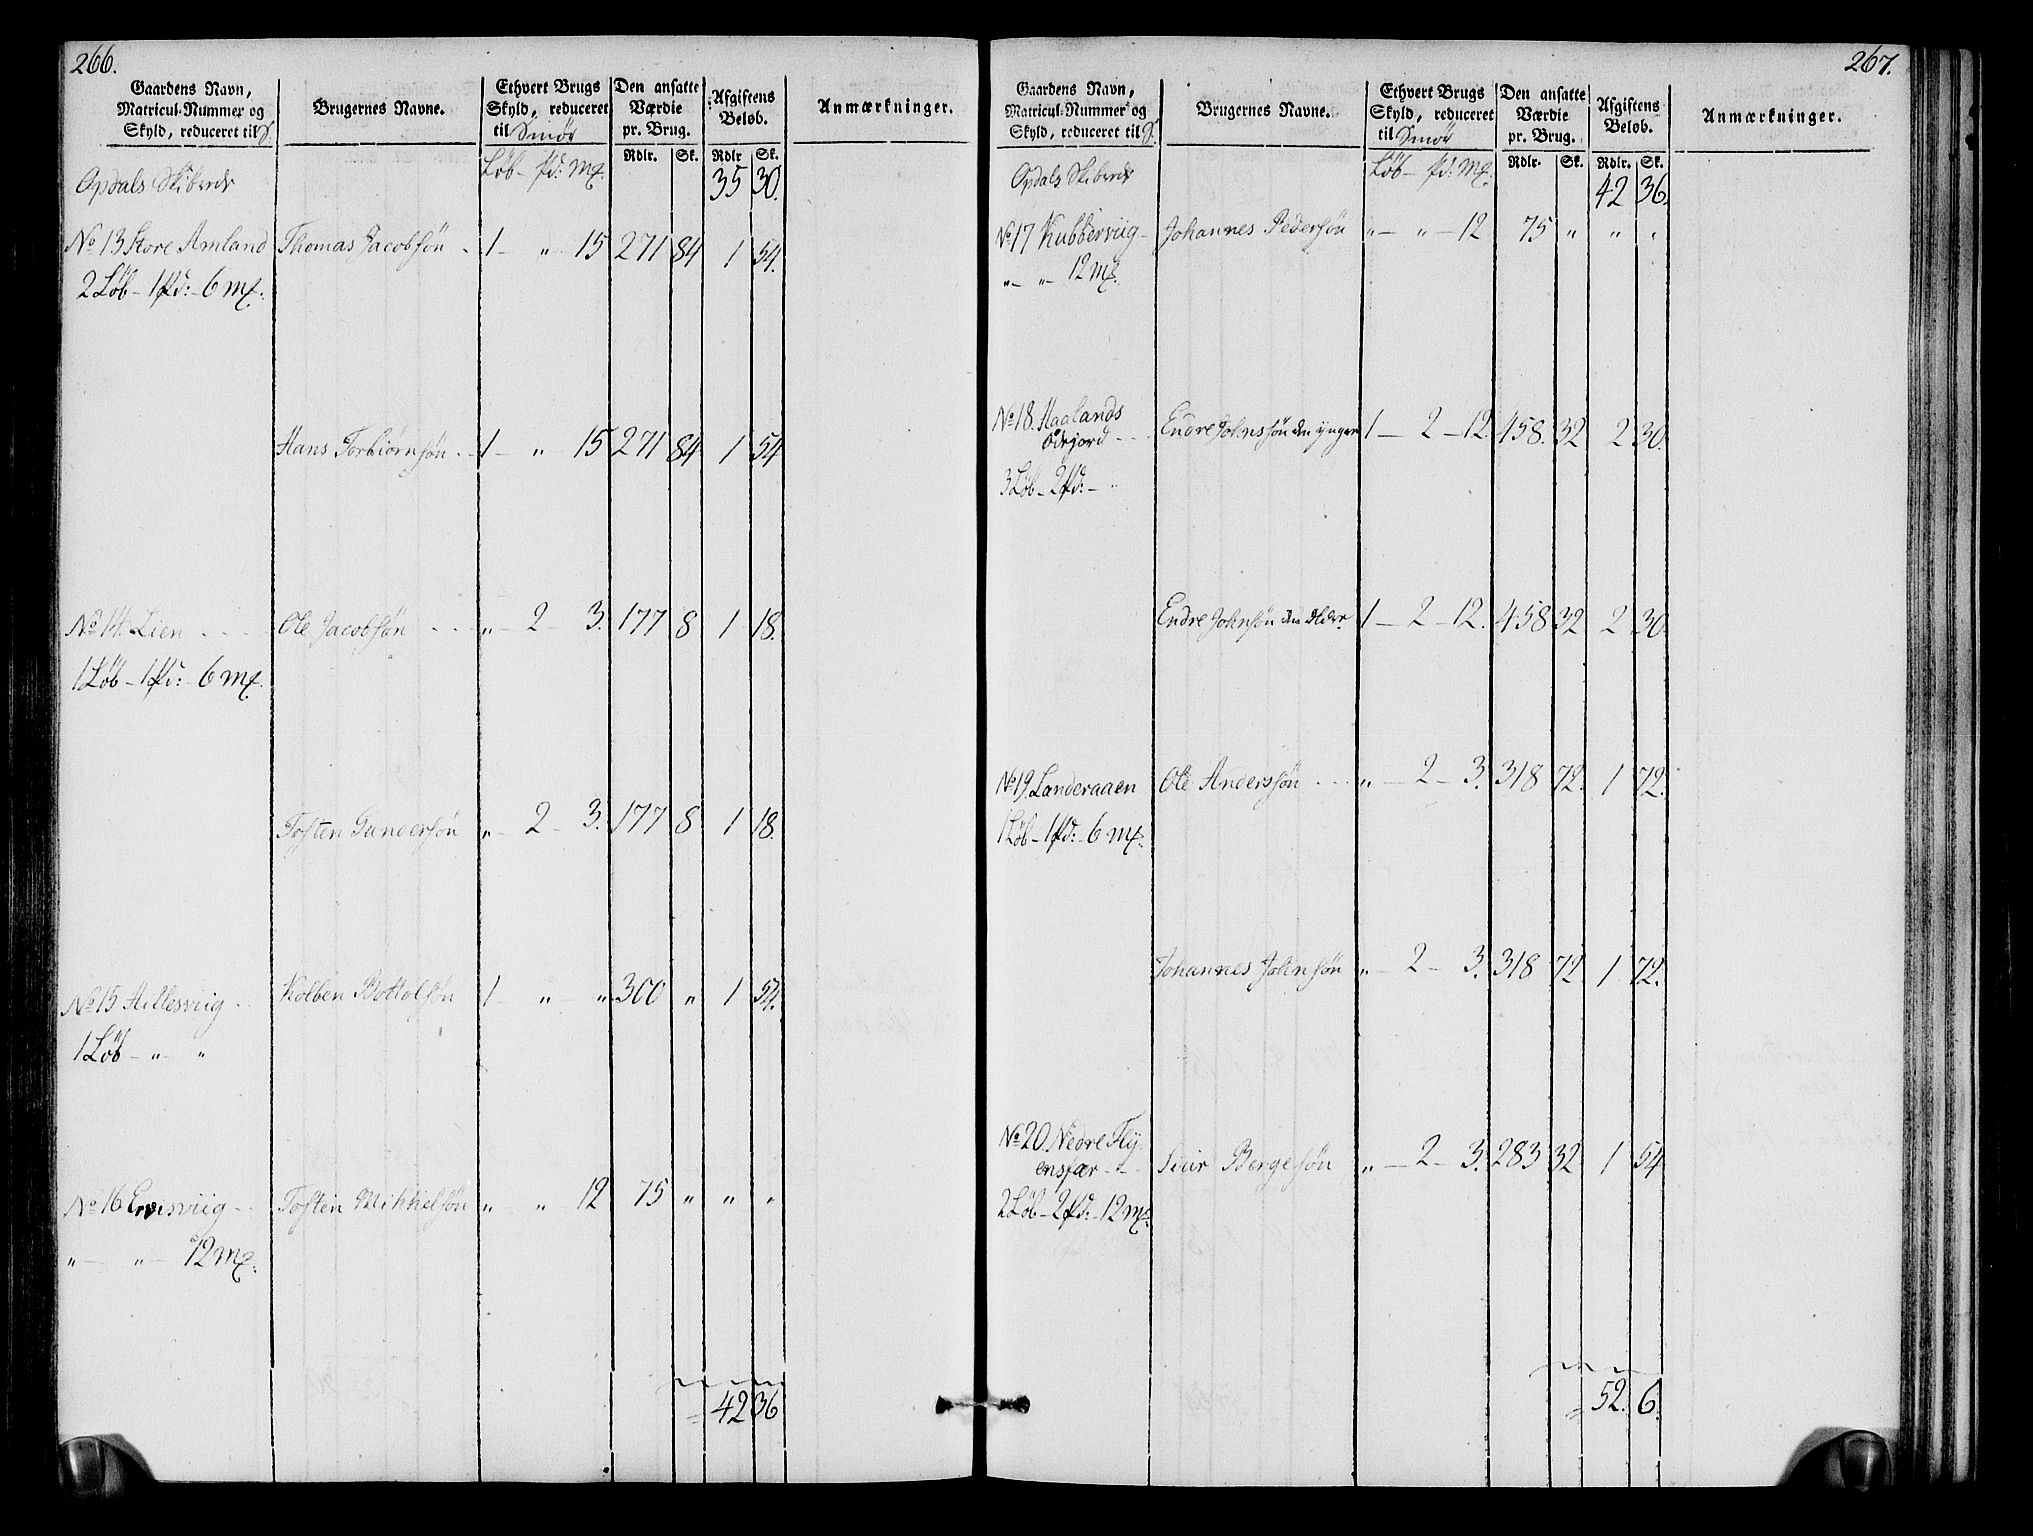 266.
Gaardens Navn, Matricul-Nummer og Skyld, reduceret til S. | Brugernes Navne. | Ethvert Brugs Skyld, reduceret til Smör | Den ansatte Værdie pr. Brug. | Afgiftens Beløb. | Anmærkninger.
Löb - pd: mk. | Rdlr. | Sk. | Rdlr | Sk.
Opdals Skibrede 35 30.
No 13 Store Amland Thomas Jacobsøn - 1 - " - 15 271 84 1 54.
2 Löb - 1 pd: - 6 mk.
Hans Torbiørnsøn - 1 - " - 15 271 84 1 54
No 14. Lien Ole Jacobsøn " - 2 - 3. 177 8 1 18.
1 Löb - 1 pd: - 6 mk.
Tosten Gundersøn " - 2 - 3. 177 8 1 18.
No 15 Hillesviig Kolben Bottolsøn 1 - " - " 300 " 1 54.
1 Löb - " - "
No 16 Ervesviig Tosten Mikkelsøn " - " - 12 75 " " "
" - " - 12 mk.
42 36
267.
Gaardens Navn, Matricul-Nummer og Skyld, reduceret til S. | Brugernes Navne. | Ethvert Brugs Skyld, reduceret til Smör | Den ansatte Værdie pr. Brug. | Afgiftens Beløb. | Anmærkninger.
Löb - pd: mk. | Rdlr. | Sk. | Rdlr. | Sk.
Opdals Skibrede 42 36.
No 17 Kubberviig Johannes Pedersøn " - " - 12 75 " " "
" - " - 12 mk.
No 18. Haalands
Ödejord Endre Johnssøn den yngre 1 - 2 - 12. 458. 32 2 30.
3 Löb - 2 pd: - "
Endre Johnsøn den Eldre 1 - 2 - 12. 458 32 2 30.
No 19. Landeraaen Ole Anderssøn " - 2 - 3. 318 72. 1 72.
1 Löb - 1 pd: - 6 mk.
Johannes Johnsøn " - 2 - 3. 318 72 1 72.
No 20. Nedre Fly-
ensfær Siur Bergesøn " - 2 - 3. 283 32 1 54
2 Löb - 2 pd: - 12 mk.
52. 6.